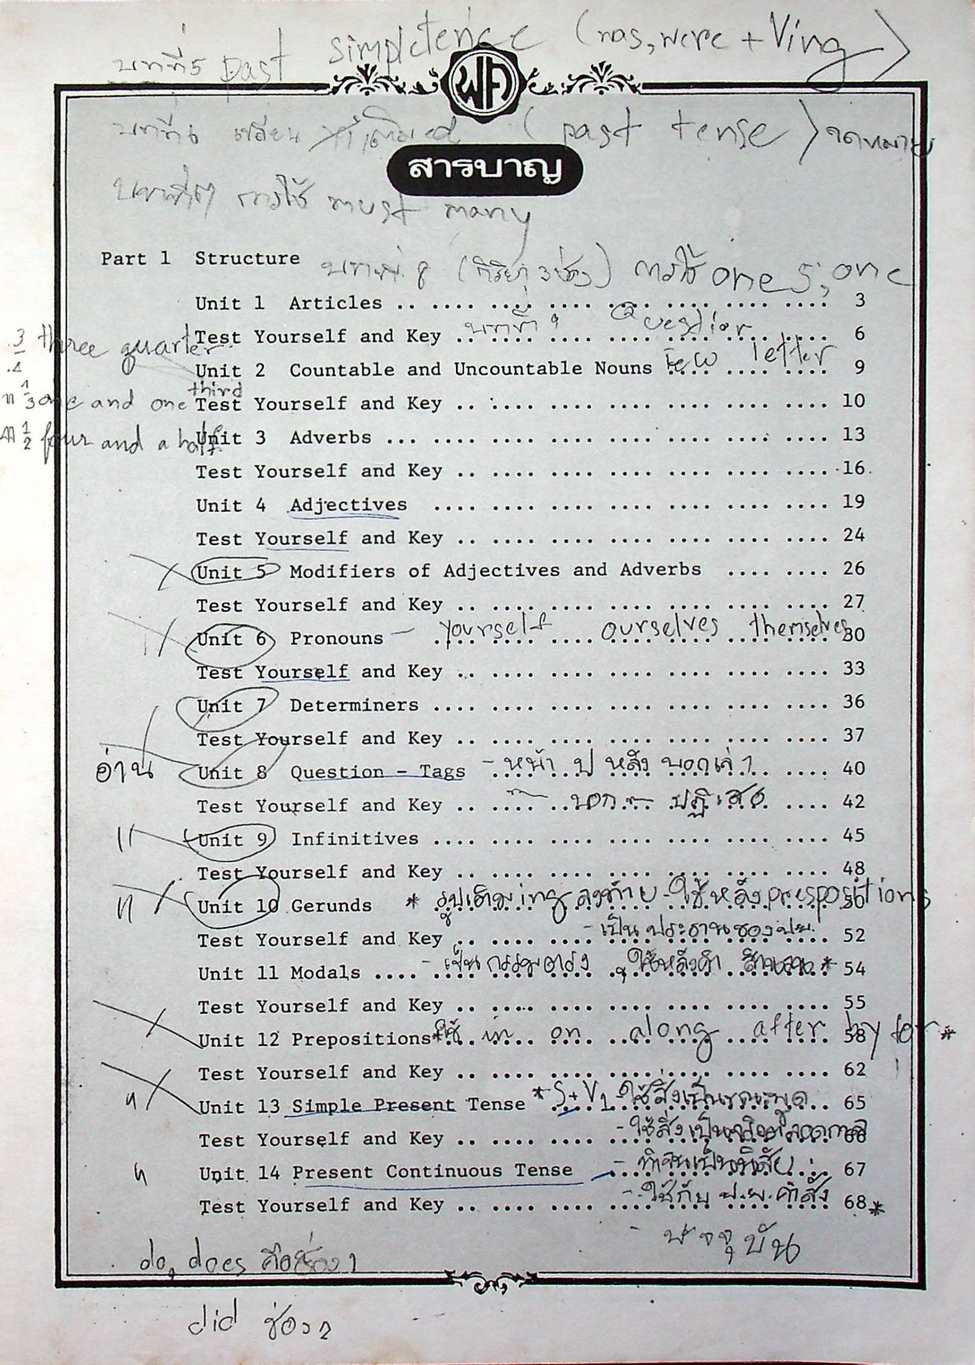 บทที่5 past simpletence (was, were + Ving)
พศ
บทที่6 เปลี่ยน (past tense) จดหมาย
สารบาญ
บทที่7 การใช้ must many
Part 1 Structure
บทที่ 8 (กิริยา 3 ช่อง) การใช้ one's, one
Unit 1 Articles .. .... .... .... .... .... .... .... 3
Test Yourself and Key .. .... .... .... .... .... .... 6
บทที่ 9 Question
3/4 three quarter
Unit 2 Countable and Uncountable Nouns .... .... .... 9
few letter
1/3 one and one third
Test Yourself and Key .. .... .... .... .... .... .... 10
1/2 four and a half
Unit 3 Adverbs ... .... .... .... .... .... .... .... 13
Test Yourself and Key .. .... .... .... .... .... .... 16
Unit 4 Adjectives .... .... .... .... .... .... .... 19
Test Yourself and Key .. .... .... .... .... .... .... 24
Unit 5 Modifiers of Adjectives and Adverbs .... .... 26
Test Yourself and Key .. .... .... .... .... .... .... 27
Unit 6 Pronouns – yourself ourselves themselves 30
Test Yourself and Key .. .... .... .... .... .... .... 33
Unit 7 Determiners .... .... .... .... .... .... .... 36
Test Yourself and Key .. .... .... .... .... .... .... 37
อ่าน Unit 8 Question - Tags - หน้า ป หลัง บอกเล่า 40
Test Yourself and Key .. .... บอก ปฏิเสธ .... 42
Unit 9 Infinitives .... .... .... .... .... .... .... 45
Test Yourself and Key .. .... .... .... .... .... .... 48
Unit 10 Gerunds * รูปเติม ing ลงท้าย - ใช้หลัง prespositions 50
- เป็นประธานของปย.
Test Yourself and Key .. .... .... .... .... .... .... 52
Unit 11 Modals .... - เป็นกรรมตรง ใช้หลังคำ * 54
Test Yourself and Key .. .... .... .... .... .... .... 55
Unit 12 Prepositions *ใช้ in on along after by for * 58
Test Yourself and Key .. .... .... .... .... .... .... 62
Unit 13 Simple Present Tense * S+V1 - ใช้สิ่งเป็นขณะพูด 65
Test Yourself and Key .. .... .... .... .... .... .... 66
Unit 14 Present Continuous Tense - ทำจนเป็นนิสัย 67
Test Yourself and Key .. .... - ใช้กับ ป.ย. คำสั่ง 68 *
ปัจจุบัน
do, does คือช่อง 1
did ช่อง 2